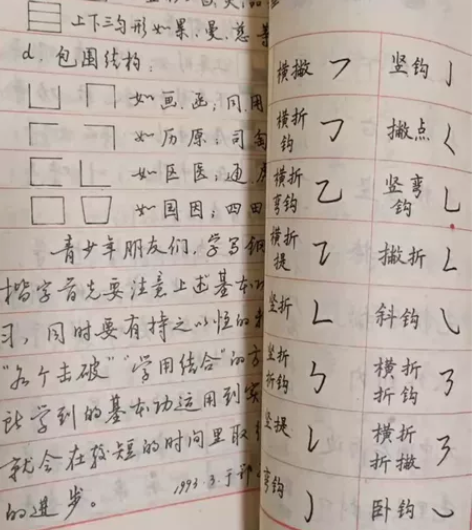 上下三勻形如果、曼、慈
d. 包围结构:
如画、函;同、用
如历原;司
如区医;通、
如国因;四田
青少年朋友们,学写钢
楷字首先要注意上述基本功
习,同时要有持之以恒的
“各个击破”“学用结合”的方
此学到的基本功运用到实
就会在较短的时间里取
的进步。
1993.3.于
横撇 竖钩
横折钩 撇点
横折弯钩 竖弯钩
横折提 撇折
竖折 斜钩
竖折折钩 横折折钩
竖提 横折折撇
弯钩 卧钩